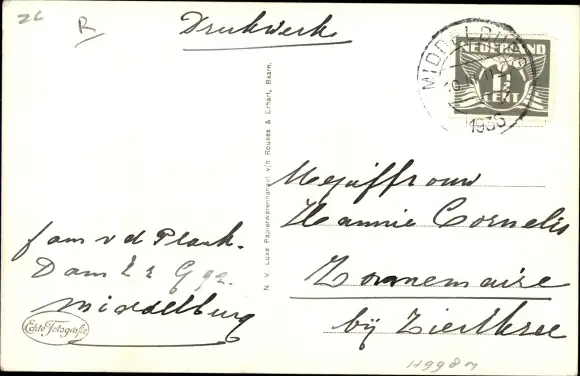 26 R
Drukwerk
MIDDELBURG
1936
NEDERLAND
1½
CENT
N. V. Luxe Papierwarenhandel v/h Roukes & Erhart, Baarn.
Mejuffrouw
Hannie Cornelis
Zonnemaire
bij Zierikzee
fam v d Plank.
Dam
Middelburg
Echte Fotografie